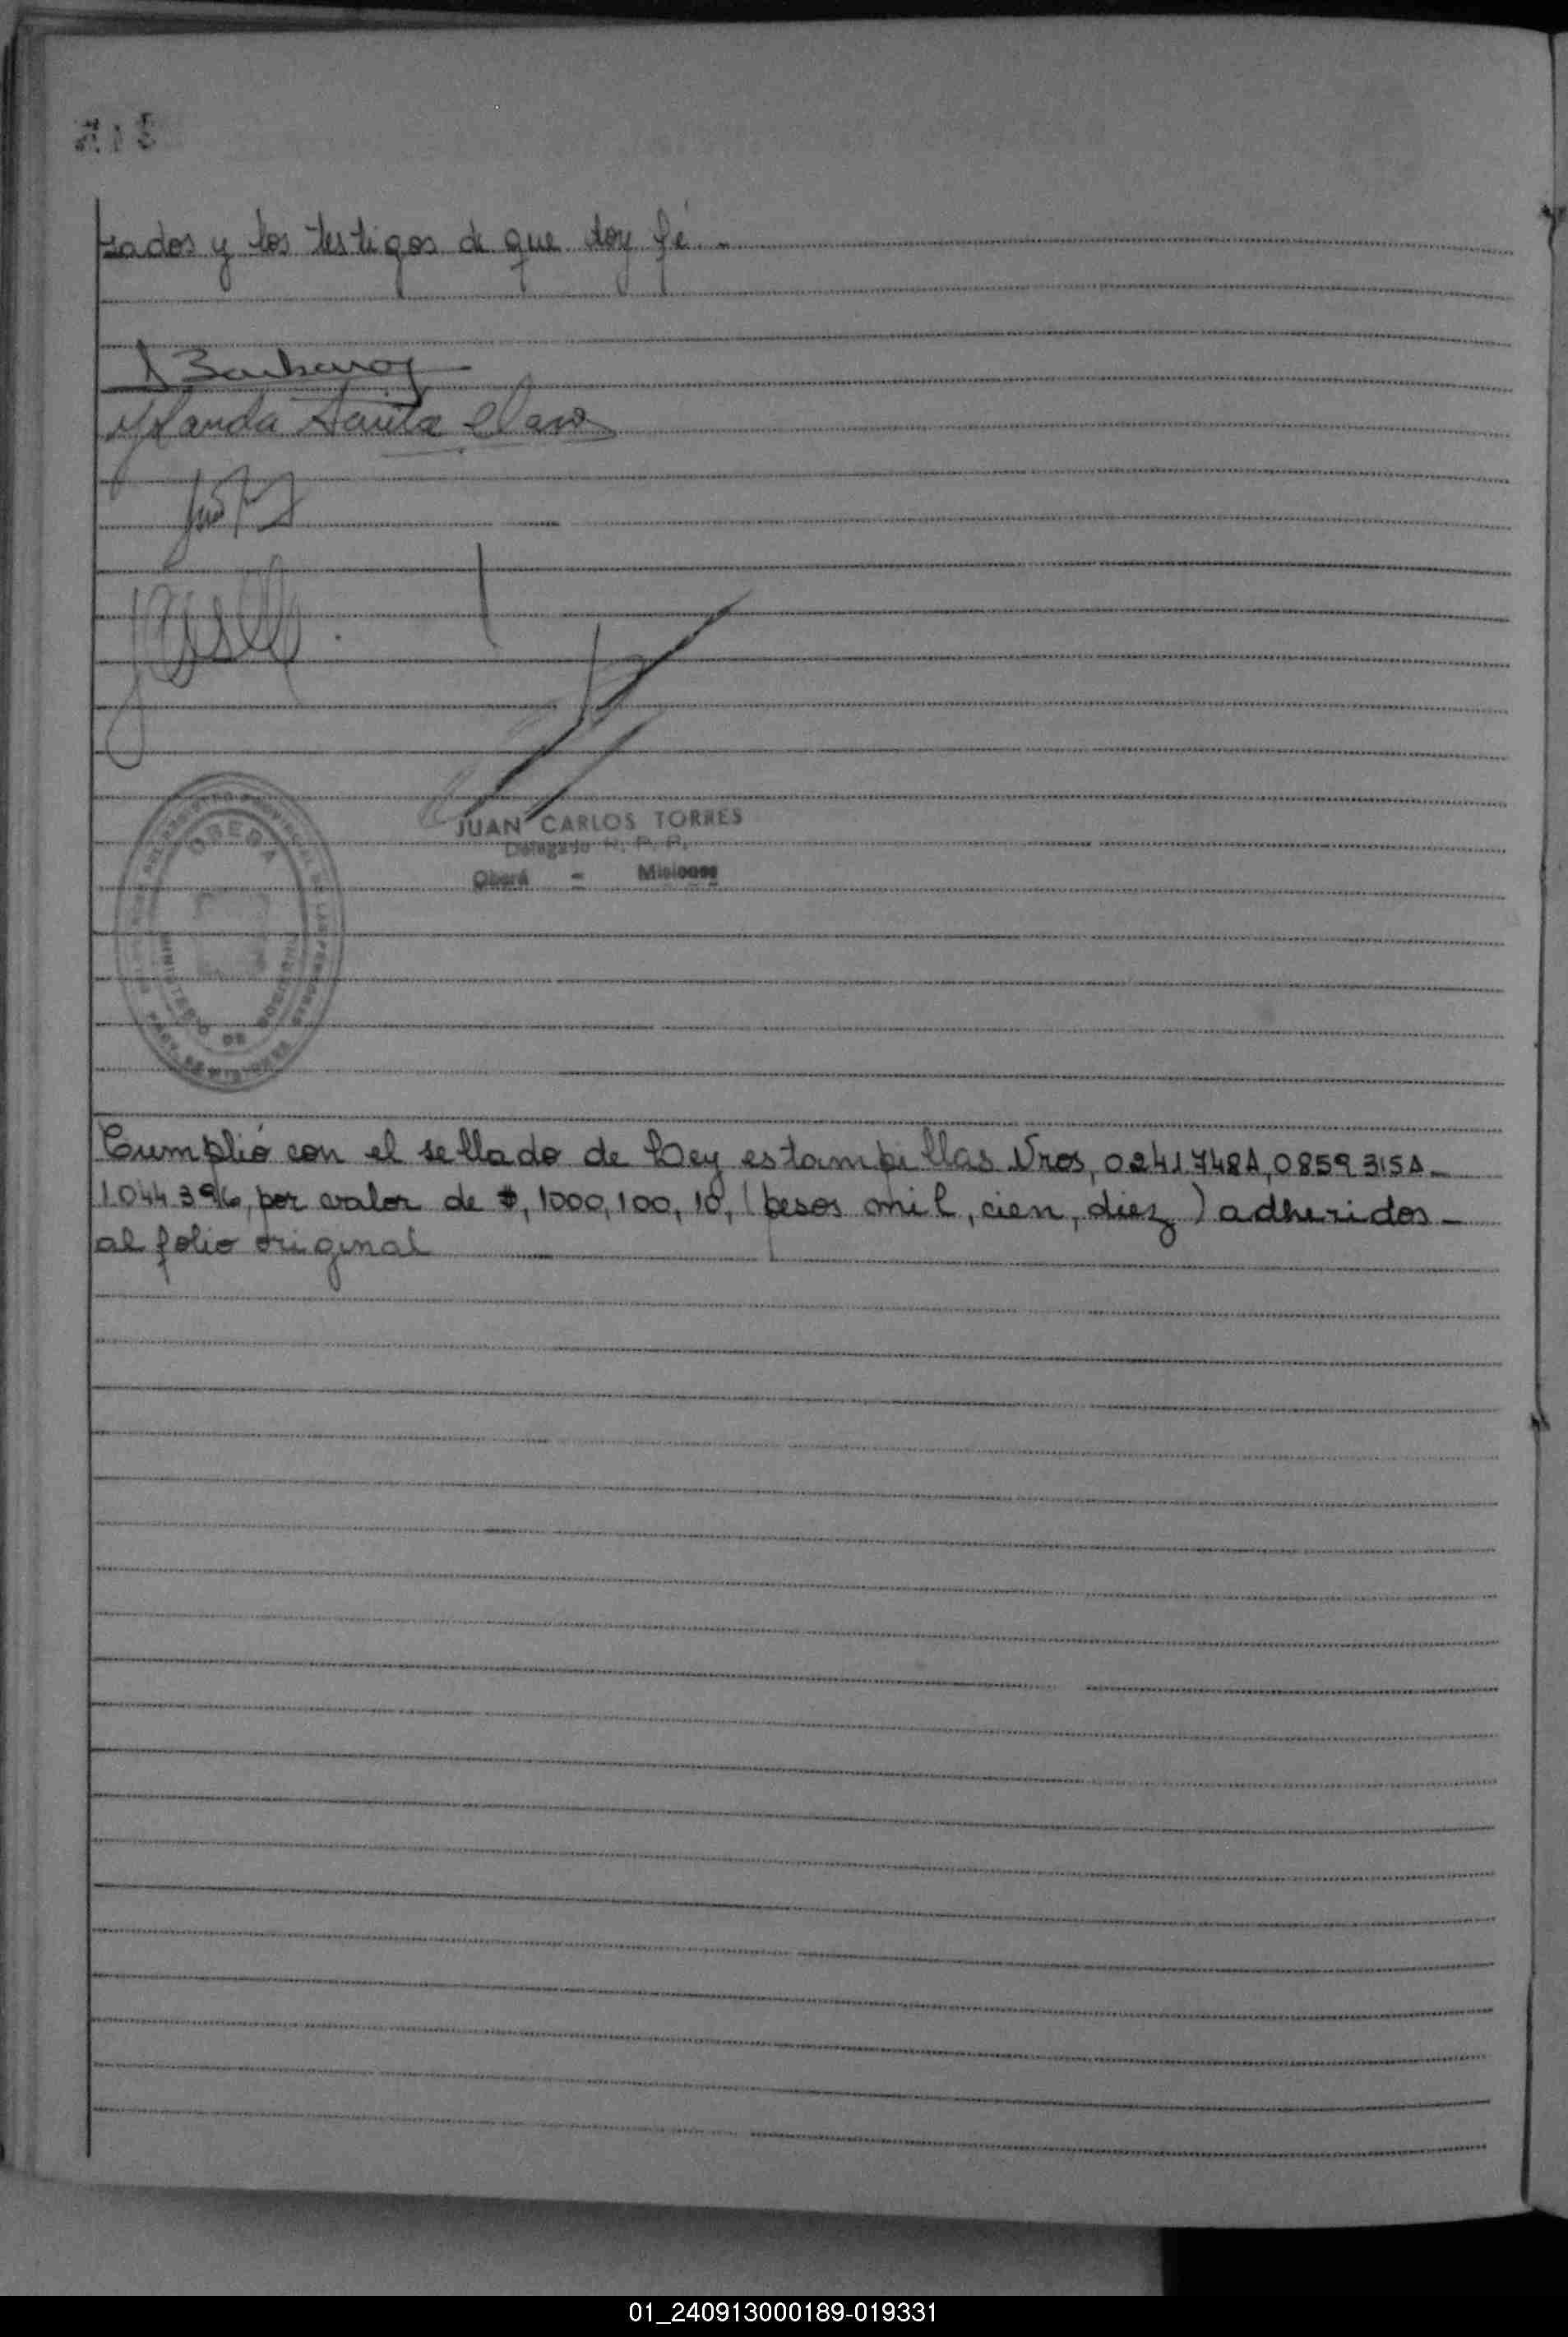 zados y los testigos de que doy fé.-
Yolanda Santa Clara
JUAN CARLOS TORRES
Delegado R. P. P.
Oberá - Misiones
OBERA
MINISTERIO DE GOBIERNO
Cumplió con el sellado de Ley estampillas Nros, 0241748A, 0859315A-
1044396, por valor de $, 1000, 100, 10, (pesos mil, cien, diez) adheridos-
al folio original
01_240913000189-019331